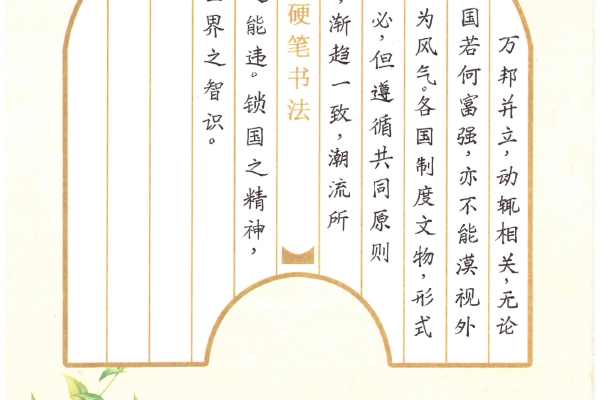 万邦并立，动辄相关，无论
国若何富强，亦不能漠视外
为风气。各国制度文物，形式
必，但遵循共同原则
，渐趋一致，潮流所
硬笔书法
能违。锁国之精神，
界之智识。